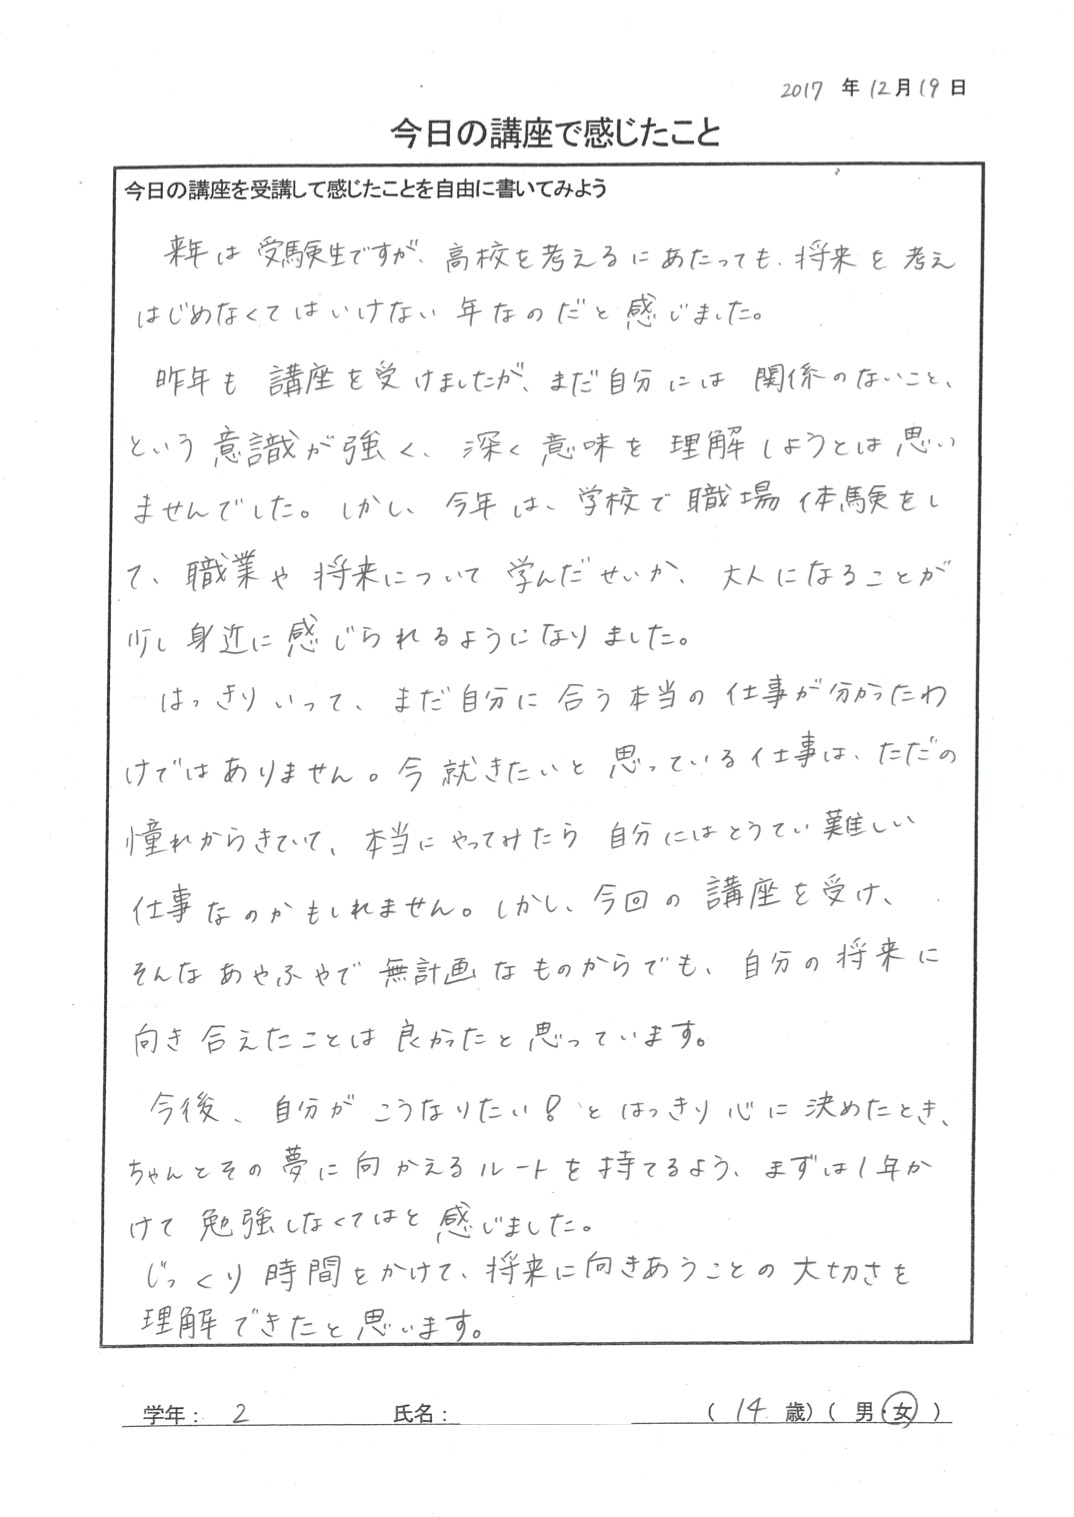 2017 年 12月 19 日
今日の講座で感じたこと
今日の講座を受講して感じたことを自由に書いてみよう
来年は受験生ですが、高校を考えるにあたっても、将来を考え
はじめなくてはいけない年なのだと感じました。
昨年も講座を受けましたが、まだ自分には関係のないこと、
という意識が強く、深く意味を理解しようとは思い
ませんでした。しかし、今年は、学校で職場体験をし
て、職業や将来について学んだせいか、大人になることが
少し身近に感じられるようになりました。
はっきりいって、まだ自分に合う本当の仕事が分かったわ
けではありません。今就きたいと思っている仕事は、ただの
憧れからきていて、本当にやってみたら自分にはとうてい難しい
仕事なのかもしれません。しかし、今回の講座を受け、
そんなあやふやで無計画なものからでも、自分の将来に
向き合えたことは良かったと思っています。
今後、自分がこうなりたい!とはっきり心に決めたとき、
ちゃんとその夢に向かえるルートを持てるよう、まずは1年か
けて勉強しなくてはと感じました。
じっくり時間をかけて、将来に向きあうことの大切さを
理解できたと思います。
学年： 2 氏名： ( 14 歳) ( 男・女 )